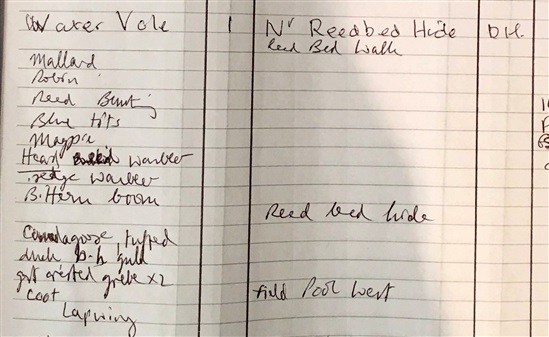 Water Vole 1 Nr Reedbed Hide D.H.
Reed Bed Walk
Mallard
Robin
Reed Bunting
Blue tits
Magpie
Heard warbler
sedge warbler
Bittern boom
Reed bed hide
Canadagoose, tufted
duck b-h gull
grt crested grebe x2
coot field Pool West
Lapwing